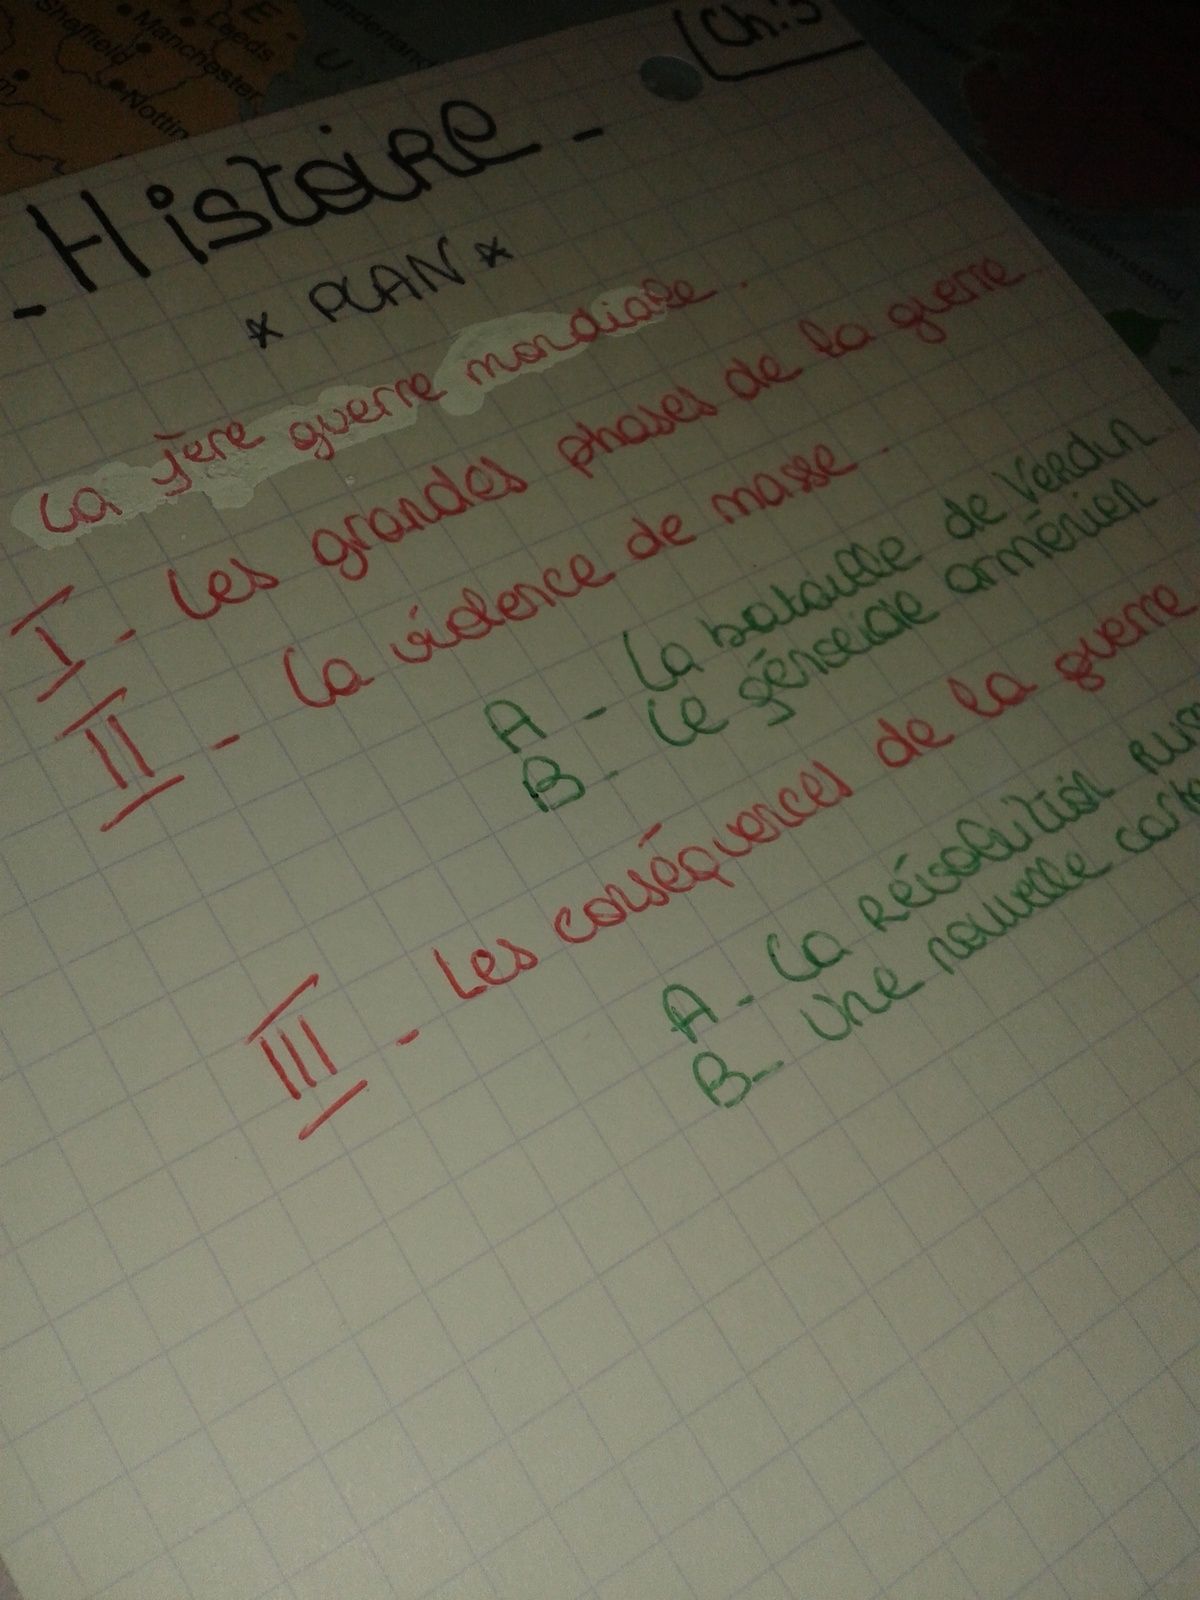 Sheffield
Manchester
Leeds
E
Ch:3
- Histoire -
* PLAN *
La 1ère guerre mondiale.
I - Les grandes phases de la guerre
II - La violence de masse.
A - La bataille de Verdun
B - Le génocide arménien
III - Les conséquences de la guerre
A - La révolution
B - Une nouvelle